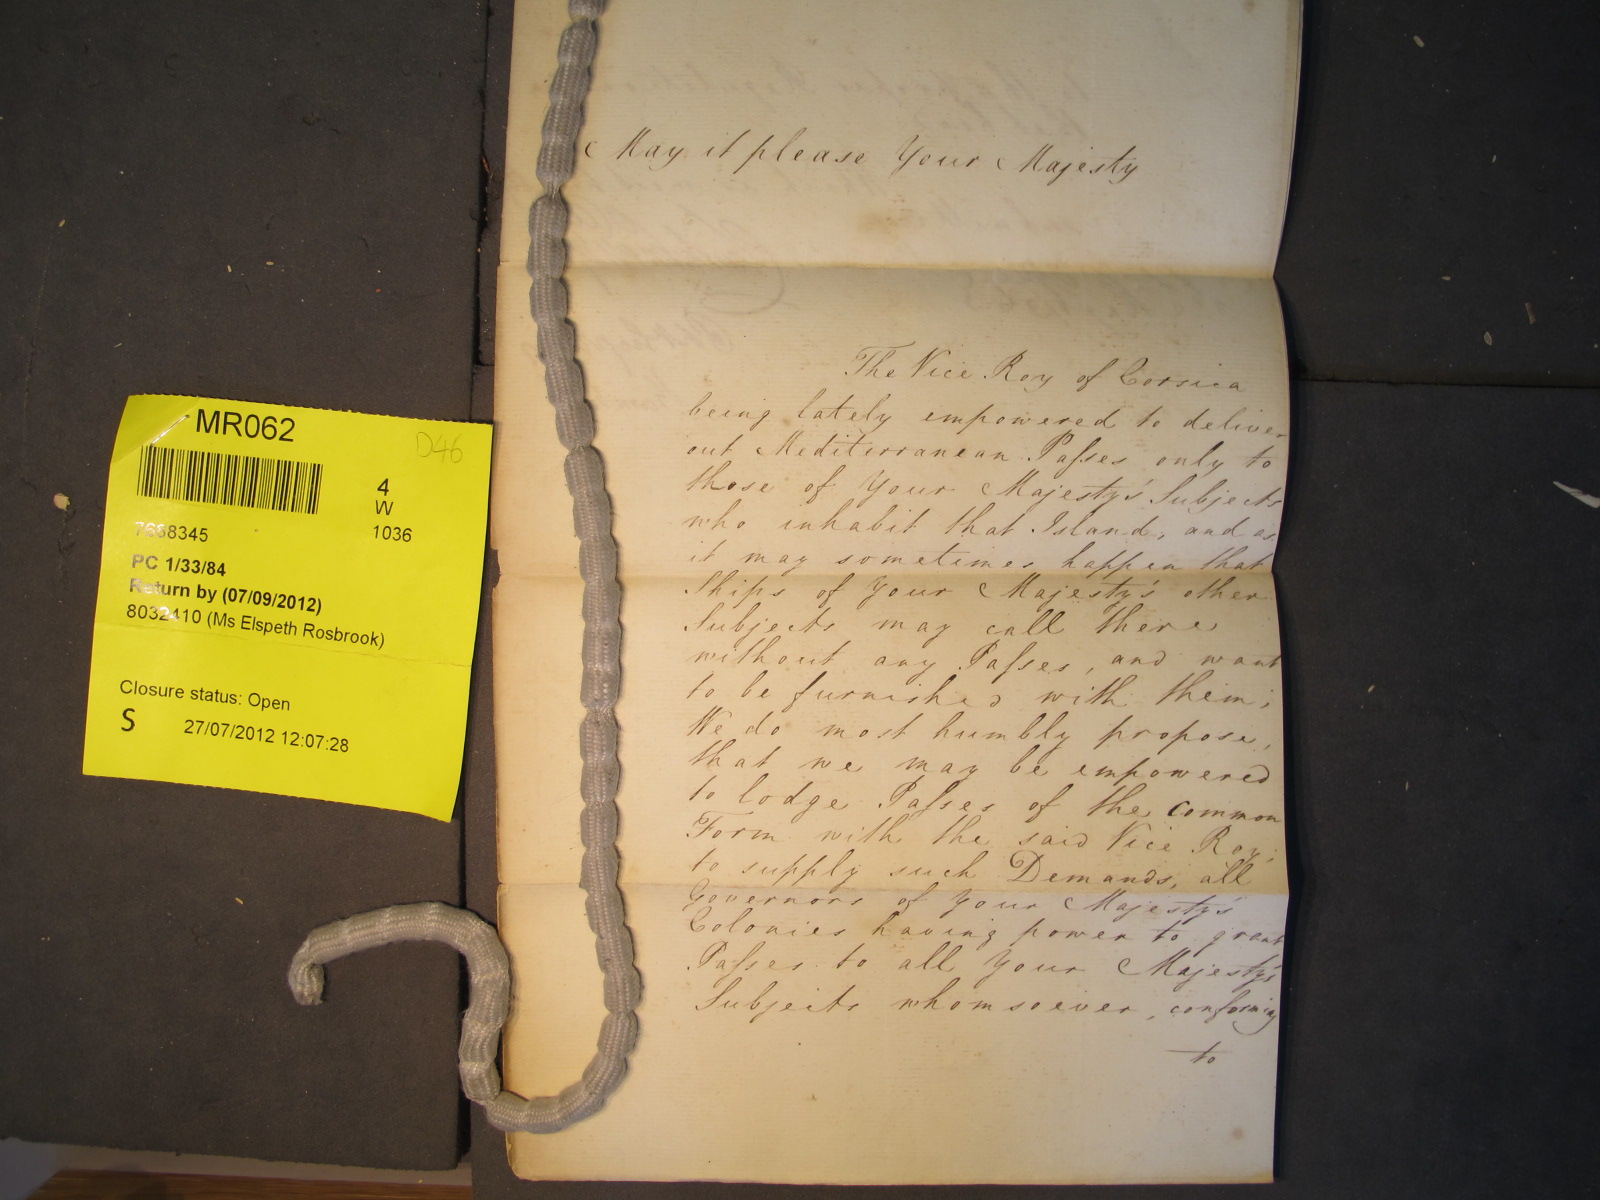 MR062
D46
4
W
7668345
1036
PC 1/33/84
Return by (07/09/2012)
8032410 (Ms Elspeth Rosbrook)
Closure status: Open
S
27/07/2012 12:07:28
May it please Your Majesty
The Vice Roy of Corsica
being lately empowered to deliver
out Mediterranean Paſses only to
those of Your Majesty's Subjects
who inhabit that Island, and as
it may sometimes happen that
Ships of Your Majesty's other
Subjects may call there
without any Paſses, and want
to be furnished with them;
We do most humbly propose,
that we may be empowered
to lodge Paſses of the common
Form with the said Vice Roy,
to supply such Demands, all
Governors of Your Majesty's
Colonies having power to grant
Paſses to all Your Majesty's
Subjects whomsoever, conforming
to